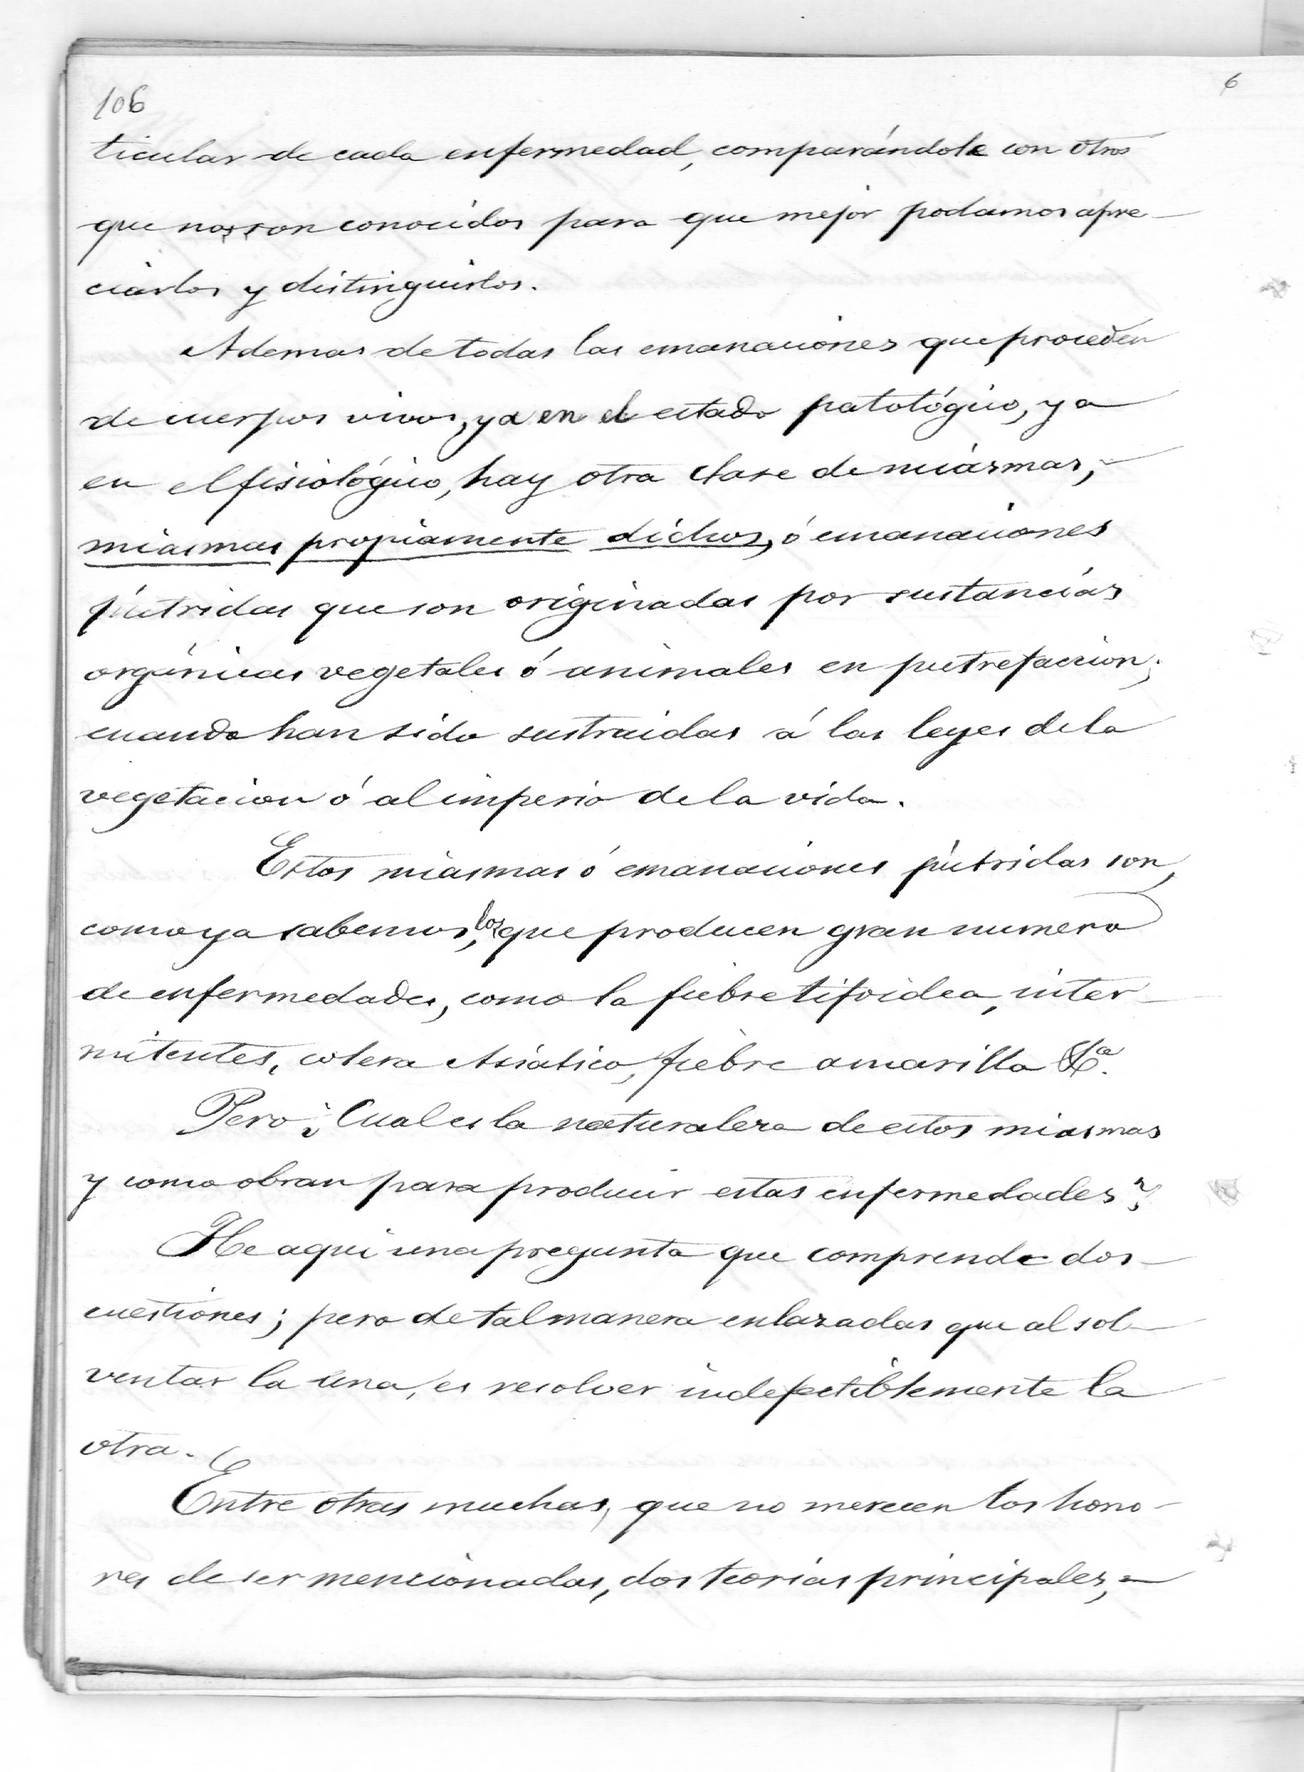 106
6
ticular de cada enfermedad, comparándole con otros
que nos son conocidos para que mejor podamos apre-
ciarlos y distinguirlos.
Ademas de todas las emanaciones que proceden
de cuerpos vivos, ya en el estado patológico, ya
en el fisiológico, hay otra clase de miásmas,
miasmas propiamente dichos, ó emanaciones
pútridas que son originadas por sustancias
orgánicas vegetales ó animales en putrefaccion;
cuando han sido sustraidas á las leyes de la
vegetacion ó al imperio de la vida.
Estos miasmas ó emanaciones pútridas son,
como ya sabemos, los que producen gran numero
de enfermedades, como la fiebre tifoidea, inter-
mitentes, colera Asiatico, fiebre amarilla &a.
Pero ¿Cual es la naturaleza de estos miasmas
y como obran para producir estas enfermedades?
He aqui una pregunta que comprende dos
cuestiones; pero de tal manera enlazadas que al sol-
ventar la una, es resolver indefectiblemente la
otra.
Entre otras muchas, que no merecen los hono-
res de ser mencionadas, dos teorias principales,